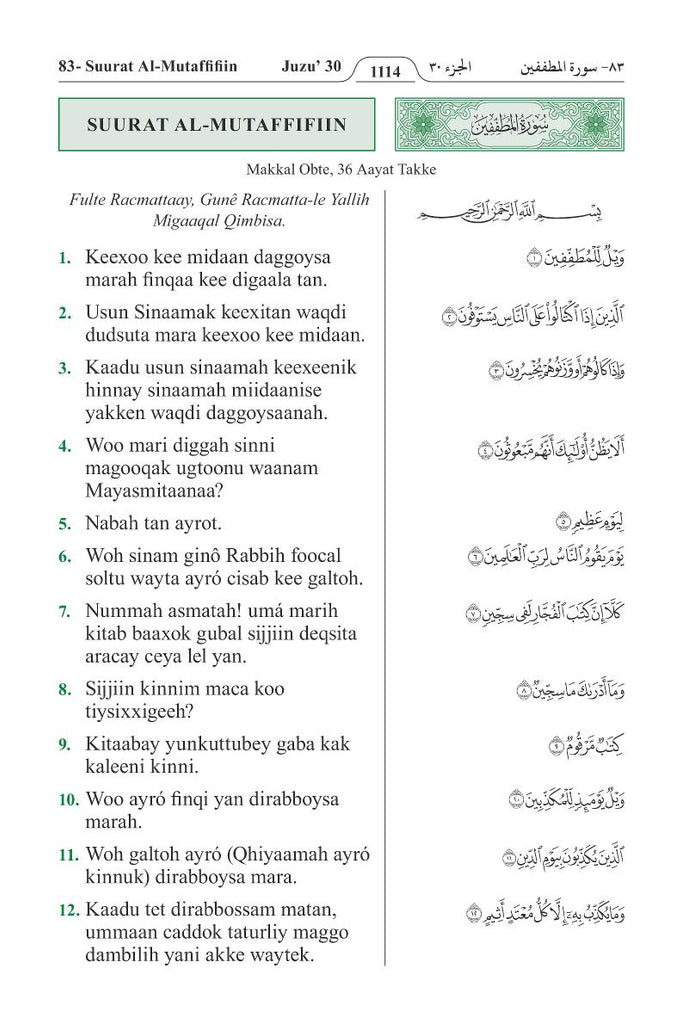 83- Suurat Al-Mutaffifiin Juzu’ 30 1114 الجزء ٣٠ ٨٣- سورة المطففين
SUURAT AL-MUTAFFIFIIN
سُورَةُ المُطَفِّفِينَ
Makkal Obte, 36 Aayat Takke
Fulte Racmattaay, Gunê Racmatta-le Yallih
Migaaqal Qimbisa.
بِسْمِ ٱللَّهِ ٱلرَّحْمَٰنِ ٱلرَّحِيمِ
1. Keexoo kee midaan daggoysa
marah finqaa kee digaala tan.
وَيْلٌ لِّلْمُطَفِّفِينَ ١
2. Usun Sinaamak keexitan waqdi
dudsuta mara keexoo kee midaan.
ٱلَّذِينَ إِذَا ٱكْتَالُوا۟ عَلَى ٱلنَّاسِ يَسْتَوْفُونَ ٢
3. Kaadu usun sinaamah keexeenik
hinnay sinaamah miidaanise
yakken waqdi daggoysaanah.
وَإِذَا كَالُوهُمْ أَو وَّزَنُوهُمْ يُخْسِرُونَ ٣
4. Woo mari diggah sinni
magooqak ugtoonu waanam
Mayasmitaanaa?
أَلَا يَظُنُّ أُو۟لَٰٓئِكَ أَنَّهُم مَّبْعُوثُونَ ٤
5. Nabah tan ayrot.
لِيَوْمٍ عَظِيمٍ ٥
6. Woh sinam ginô Rabbih foocal
soltu wayta ayró cisab kee galtoh.
يَوْمَ يَقُومُ ٱلنَّاسُ لِرَبِّ ٱلْعَٰلَمِينَ ٦
7. Nummah asmatah! umá marih
kitab baaxok gubal sijjiin deqsita
aracay ceya lel yan.
كَلَّآ إِنَّ كِتَٰبَ ٱلْفُجَّارِ لَفِى سِجِّينٍ ٧
8. Sijjiin kinnim maca koo
tiysixxigeeh?
وَمَآ أَدْرَىٰكَ مَا سِجِّينٌ ٨
9. Kitaabay yunkuttubey gaba kak
kaleeni kinni.
كِتَٰبٌ مَّرْقُومٌ ٩
10. Woo ayró finqi yan dirabboysa
marah.
وَيْلٌ يَوْمَئِذٍ لِّلْمُكَذِّبِينَ ١٠
11. Woh galtoh ayró (Qhiyaamah ayró
kinnuk) dirabboysa mara.
ٱلَّذِينَ يُكَذِّبُونَ بِيَوْمِ ٱلدِّينِ ١١
12. Kaadu tet dirabbossam matan,
ummaan caddok taturliy maggo
dambilih yani akke waytek.
وَمَا يُكَذِّبُ بِهِۦٓ إِلَّا كُلُّ مُعْتَدٍ أَثِيمٍ ١٢